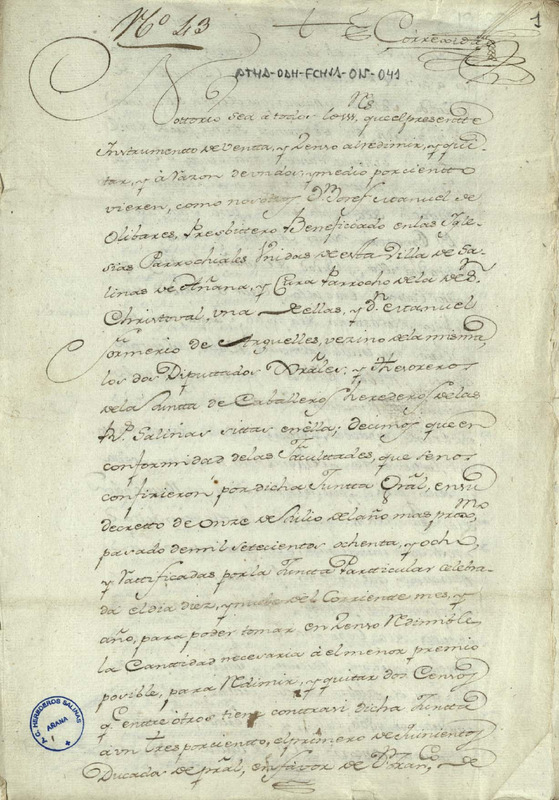 Nº 43
1
Corregida
ATHA-DAH-FCHSA-ON-041
Nottorio sea á todos los SS.res que el presente
Instrumento de venta, y Zenso al redimir, y qui-
tar, y à razon de un dos, y medio por ciento
vieren, como nosotros Dn Josef Manuel de
Olibares, Presbitero Beneficiado en las Igle-
sias Parrochiales Unidas de esta Villa de Sa-
linas de Añana, y Cura Parrocho de la de Sn
Christoval, una de ellas, y Dn Manuel
de Arguelles, vezino de la misma,
los dos Diputtados Grâles, y thesoreros
de la Juntta de Caballeros herederos de las
Rs Salinas sittas en ella; decimos que en
conformidad de las Facultades, que se nos
confirieron por dicha Juntta Grâl, en su
decretto de onze de Julio del año mas proxmo
pasado de mil setecientos ochenta, y ocho,
y rattificadas por la Juntta Particular celebra-
da el dia diez, y nuebe del Corriente mes, y
año, para poder tomar en Zenso Redimible
la Cantidad necesaria à el menor premio
posible, para Redimir, y quitar dos Censos
q.e entre otros tiene contra si dicha Juntta
a un tres por ciento, el primero de quinientos
Ducados de prâl, en favor de Dn Franco de
T. C. HEREDEROS SALINAS
AÑANA